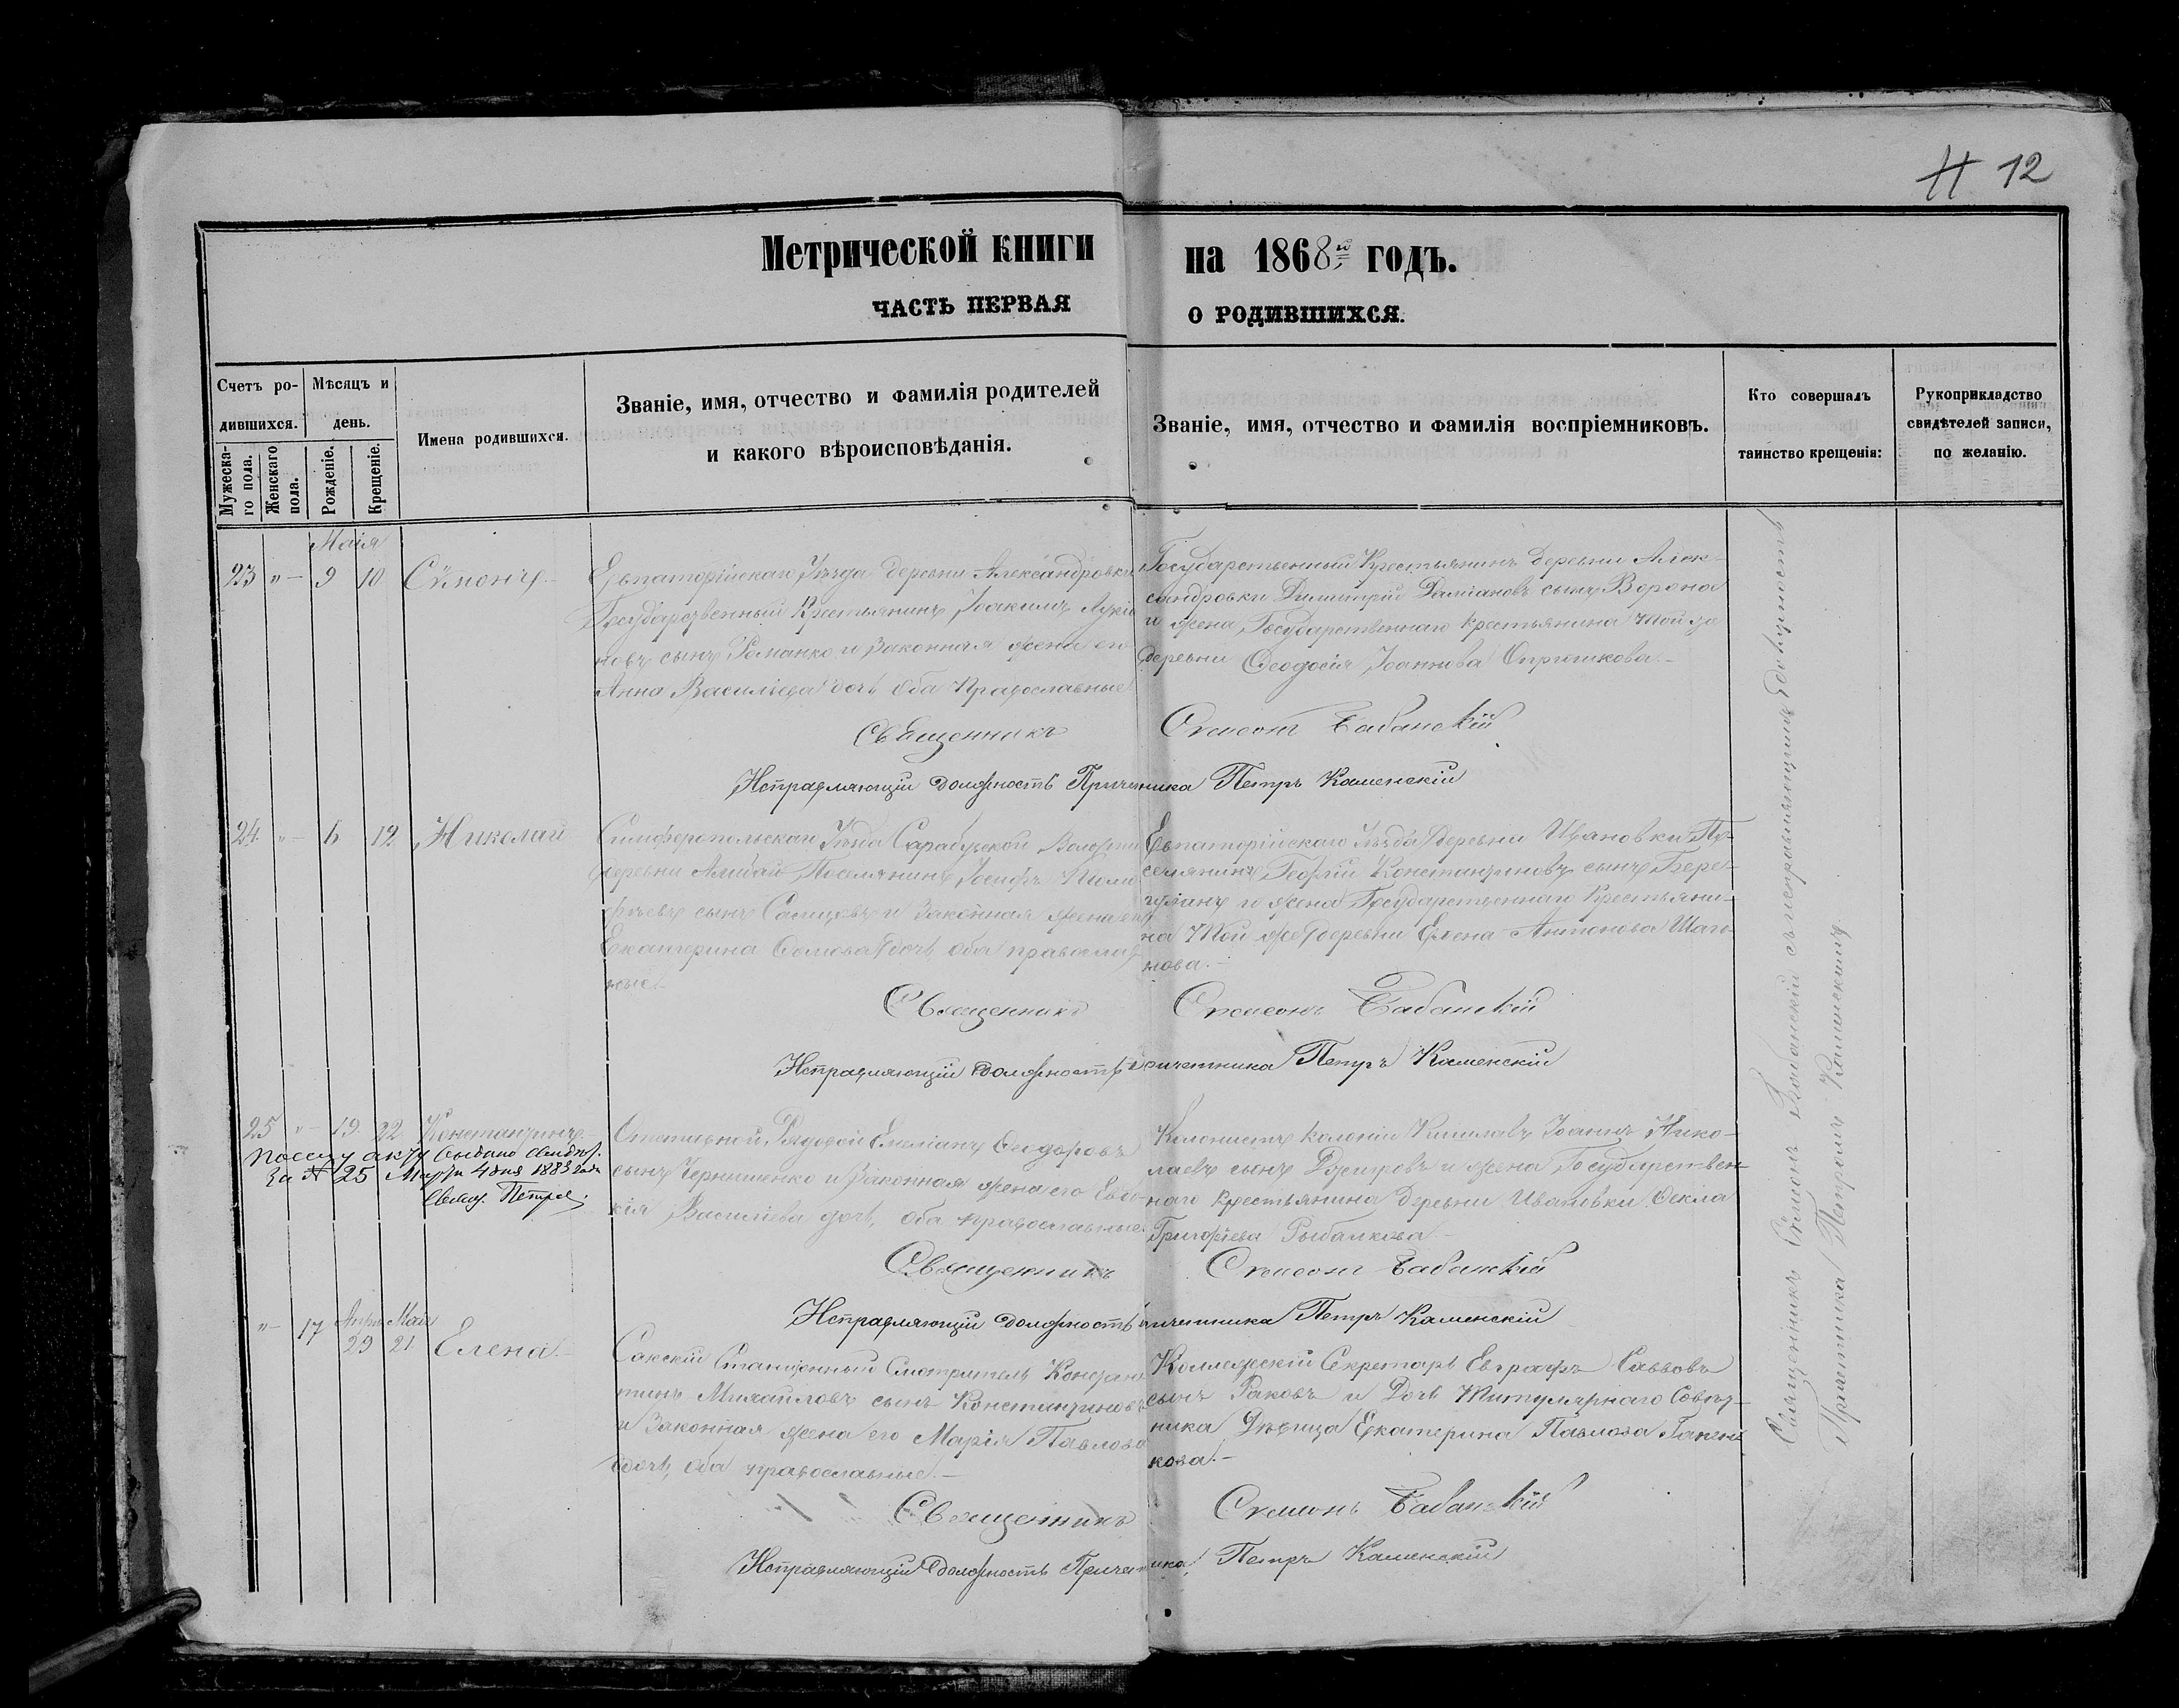 Н 12
Метрической книги на 1868й годъ.
ЧАСТЬ ПЕРВАЯ О РОДИВШИХСЯ.
Счетъ ро-
дившихся.
Мужеска-
го пола.
Женскаго
пола.
Мѣсяцъ и
день.
Рожденіе.
Крещеніе.
Имена родившихся.
Званіе, имя, отчество и фамилія родителей
и какого вѣроисповѣданія.
Званіе, имя, отчество и фамилія воспріемниковъ.
Кто совершалъ
таинство крещенія:
Рукоприкладство
свидѣтелей записи,
по желанію.
Маія
23 " 9 10 Сѵмонъ
Евпаторійскаго Уѣзда деревни Александровки
Государственный Крестьянинъ Іоакимъ Лукіа
новъ сынъ Романко и Законная жена его
Анна Васильева дочь оба Православные
Государственный Крестьянинъ деревни Алек-
сандровки Димитрій Даміановъ сынъ Ворона
и жена Государственнаго крестьянина той же
деревни Ѳеодосія Іоаннова
Священникъ Симеонъ Бабанскій
Исправляющій должность Причетника Петръ Каменскій
24 " 6 12 Николай
Симферопольскаго Уѣзда Сарабузской Волости
деревни Поселянинъ Іосифъ
сынъ и Законная жена его
Екатерина дочь, оба православ
ные
Евпаторійскаго Уѣзда деревни Ивановки По-
селянинъ Георгій Константиновъ сынъ Бере-
и жена Государственнаго Крестьяни-
на той же деревни Елена Антонова
нова.
Священникъ Симеонъ Бабанскій
Исправляющій должность Причетника Петръ Каменскій
25 " 19 22 Константинъ
По сему акту выдано свидѣт.
За № 25 Марта 4 дня 1883 года
Свящ. Петръ
Отставной Рядовой Емеліанъ Ѳеодоровъ
сынъ Чернишенко и Законная жена его Евдо-
кія Васильева дочь, оба православные.
Колонистъ колоніи Кишлавъ Іоаннъ Нико-
лаевъ сынъ и жена Государствен-
наго крестьянина деревни Ивановки Ѳекла
Григорьева Рыбалкова
Священникъ Симеонъ Бабанскій
Исправляющій должность Причетника Петръ Каменскій
Апрѣ. Маія
" 17 29 21 Елена
Сакскій Станціонный Смотритель Констан
тинъ Михайловъ сынъ Константиновъ
и Законная жена его Марія Павлова
дочь, оба православные.
Коллежскій Секретарь Евграфъ Саввовъ
сынъ Раковъ и Дочь Титулярнаго Совѣт-
ника Дѣвица Екатерина Павлова
кова.
Священникъ Симеонъ Бабанскій
Исправляющій должность Причетника Петръ Каменскій
Священникъ Сѵмеонъ Бабанскій съ исправляющимъ должность
Причетника Петромъ Каменскимъ